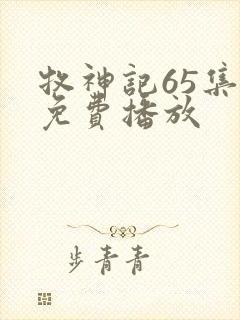 牧神記65集
免費播放
步青青